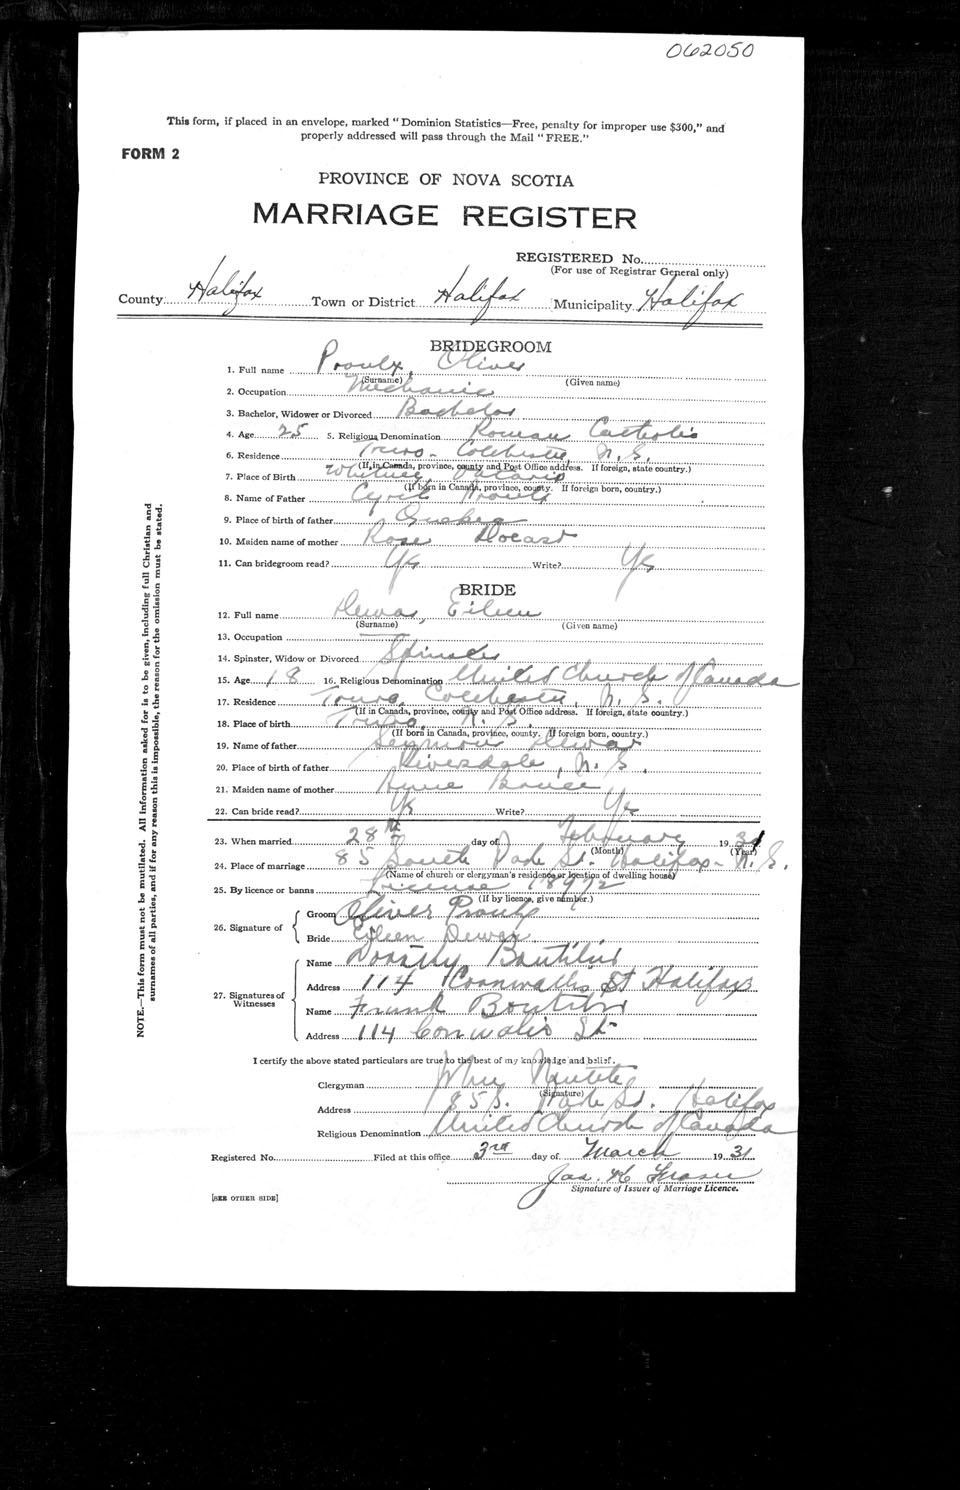 062050
This form, if placed in an envelope, marked "Dominion Statistics—Free, penalty for improper use $300," and
properly addressed will pass through the Mail "FREE."
FORM 2
PROVINCE OF NOVA SCOTIA
MARRIAGE REGISTER
REGISTERED No.
(For use of Registrar General only)
County Halifax Town or District Halifax Municipality Halifax
BRIDEGROOM
1. Full name Proulx, Oliver
(Surname) (Given name)
2. Occupation Mechanic
3. Bachelor, Widower or Divorced Bachelor
4. Age 25 5. Religious Denomination Roman Catholic
6. Residence Truro - Colchester, N.S.
(If in Canada, province, county and Post Office address. If foreign, state country.)
7. Place of Birth Whitney Ontario
(If born in Canada, province, county. If foreign born, country.)
8. Name of Father Cyril Proulx
9. Place of birth of father Quebec
10. Maiden name of mother Rose
11. Can bridegroom read? Yes Write? Yes
BRIDE
12. Full name Dewar, Eileen
(Surname) (Given name)
13. Occupation
14. Spinster, Widow or Divorced Spinster
15. Age 18 16. Religious Denomination United Church of Canada
17. Residence Truro, Colchester, N.S.
(If in Canada, province, county and Post Office address. If foreign, state country.)
18. Place of birth Truro, N.S.
(If born in Canada, province, county. If foreign born, country.)
19. Name of father Seymour Dewar
20. Place of birth of father Riversdale, N.S.
21. Maiden name of mother Annie
22. Can bride read? Yes Write? Yes
23. When married 28th day of February 1931
(Month) (Year)
24. Place of marriage 85 South Park St. Halifax - N.S.
(Name of church or clergyman's residence or location of dwelling house)
25. By licence or banns License 18972
(If by licence, give number.)
26. Signature of Groom Oliver Proulx
Bride Eileen Dewar
27. Signatures of Witnesses Name Dorothy Boutilier
Address 114 Cornwallis St Halifax
Name Frank Boutilier
Address 114 Cornwalis St
I certify the above stated particulars are true to the best of my knowledge and belief.
Clergyman
(Signature)
Address 85 S. Park St. Halifax
Religious Denomination United Church of Canada
Registered No. Filed at this office 3rd day of March 1931
Jas. H. Fraser
Signature of Issuer of Marriage Licence.
[SEE OTHER SIDE]
NOTE.—This form must not be mutilated. All information asked for is to be given, including full Christian and
surnames of all parties, and if for any reason this is impossible, the reason for the omission must be stated.